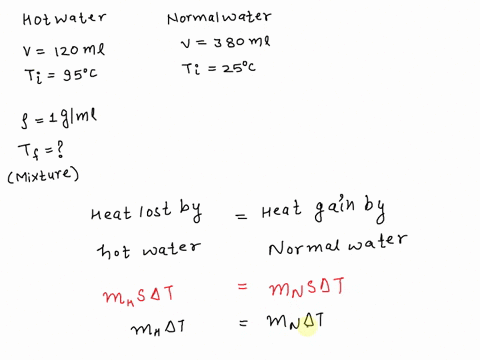 Hot water
V = 120 ml
Ti = 95°C
Normal water
V = 380 ml
Ti = 25°C
ρ = 1 g/ml
Tf = ?
(Mixture)
Heat lost by = Heat gain by
hot water Normal water
mH S ΔT = mN S ΔT
mH ΔT = mN ΔT